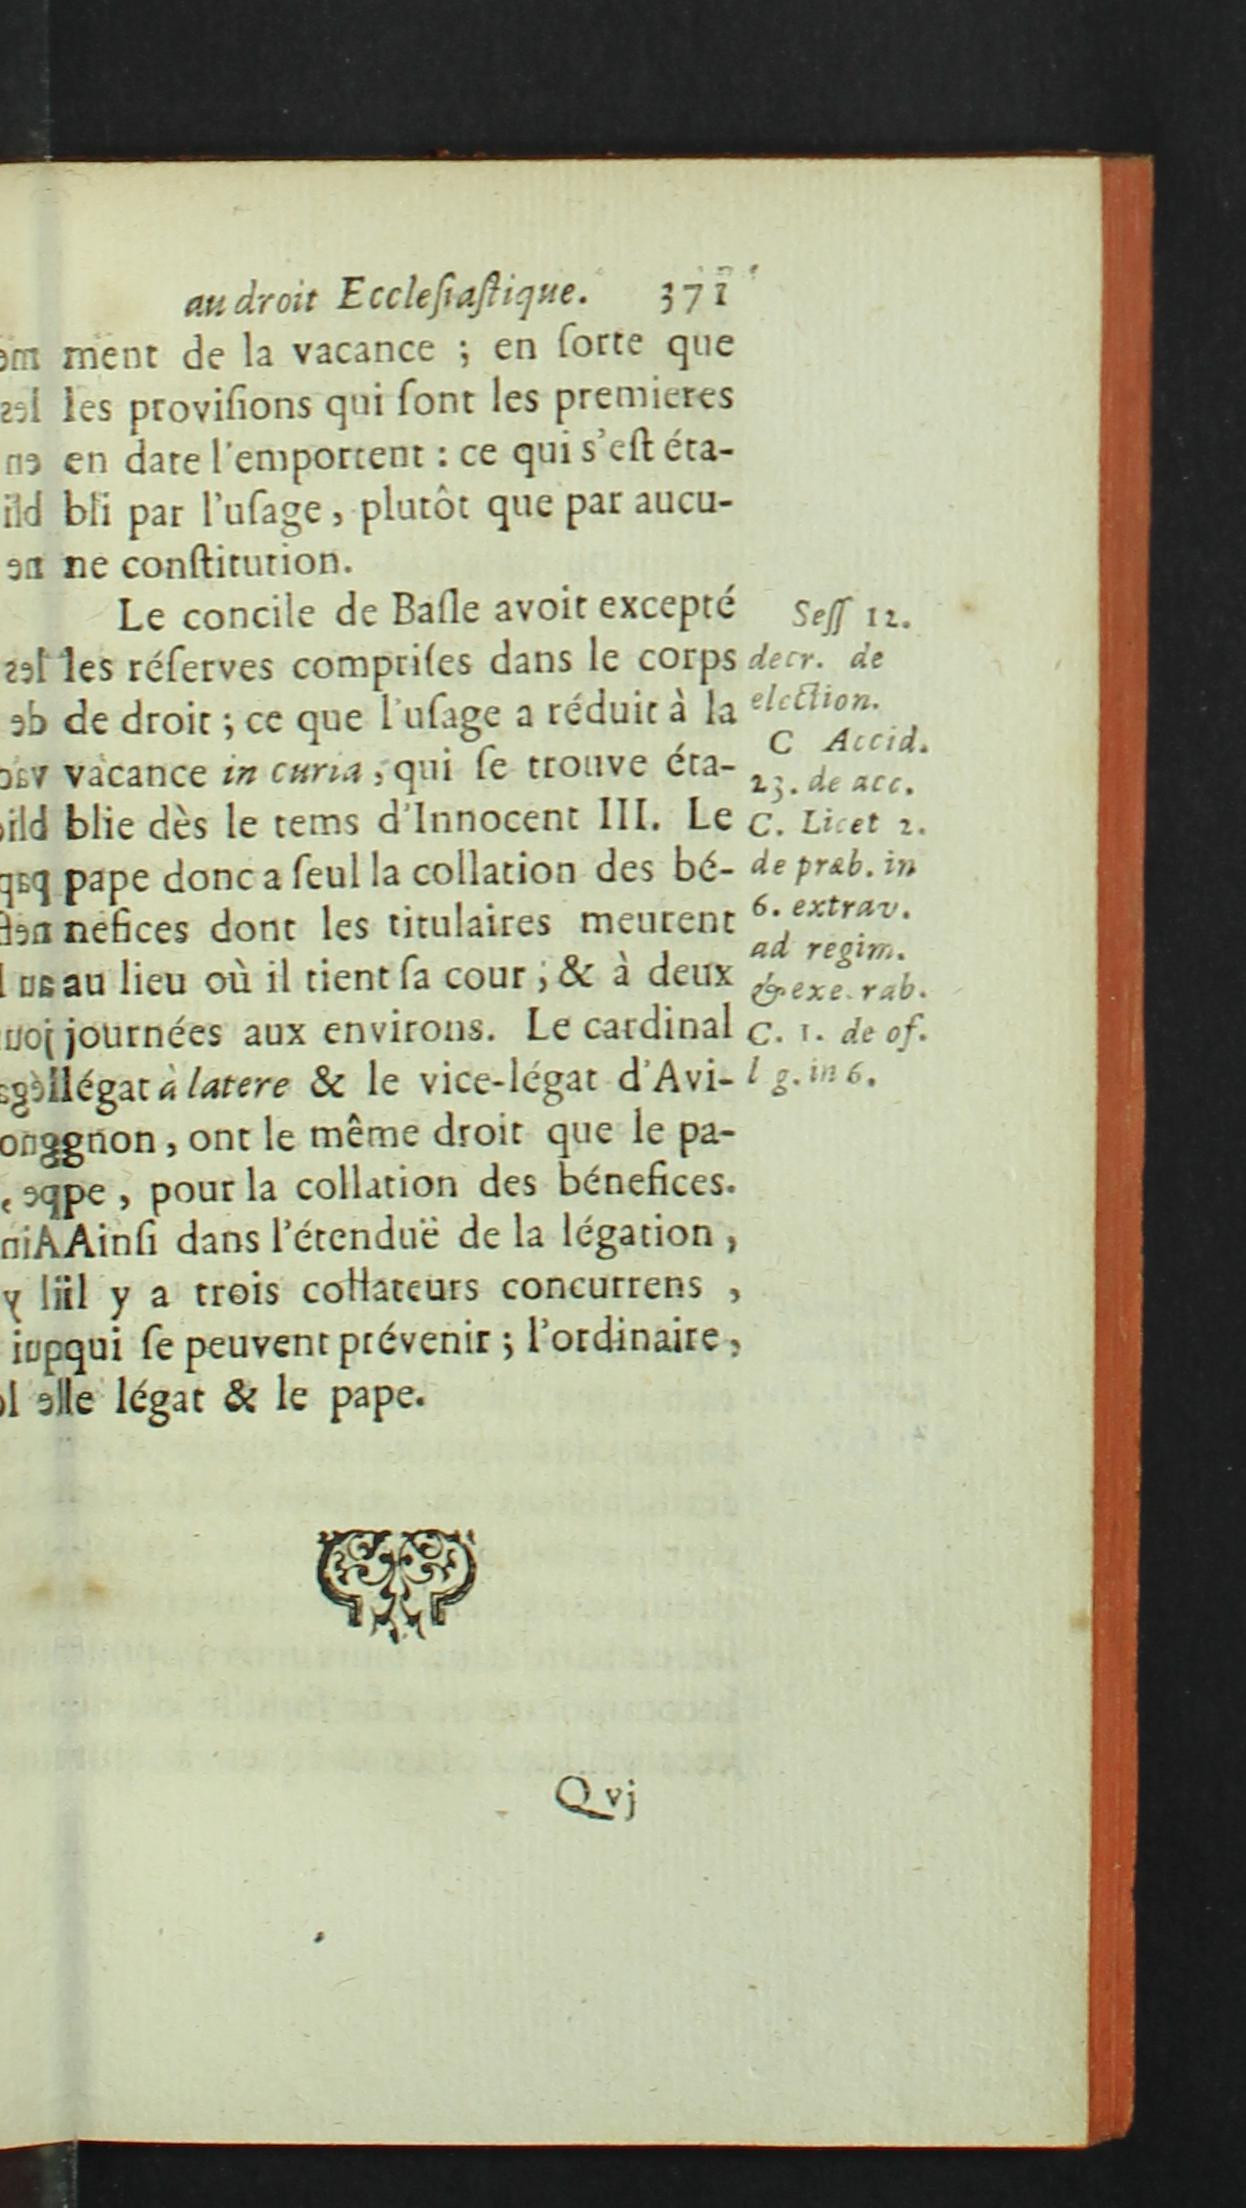 au droit Eccleſiaſtique. 371
ment de la vacance ; en ſorte que
les proviſions qui ſont les premieres
en date l'emportent : ce qui s'eſt éta-
bli par l'uſage, plutôt que par aucu-
ne conſtitution.
Le concile de Baſle avoit excepté
les réſerves compriſes dans le corps
de droit ; ce que l'uſage a réduit à la
vacance in curia, qui ſe trouve éta-
blie dès le tems d'Innocent III. Le
pape donc a ſeul la collation des bé-
néfices dont les titulaires meurent
au lieu où il tient ſa cour ; & à deux
journées aux environs. Le cardinal
légat à latere & le vice-légat d'Avi-
gnon, ont le même droit que le pa-
pe, pour la collation des bénefices.
Ainſi dans l'étenduë de la légation,
il y a trois collateurs concurrens,
qui ſe peuvent prévenir ; l'ordinaire,
le légat & le pape.
Seſſ 12.
decr. de
election.
C Accid.
23. de acc.
C. Licet 2.
de præb. in
6. extrav.
ad regim.
& exe. rab.
C. 1. de of.
l g. in 6.
Qvj